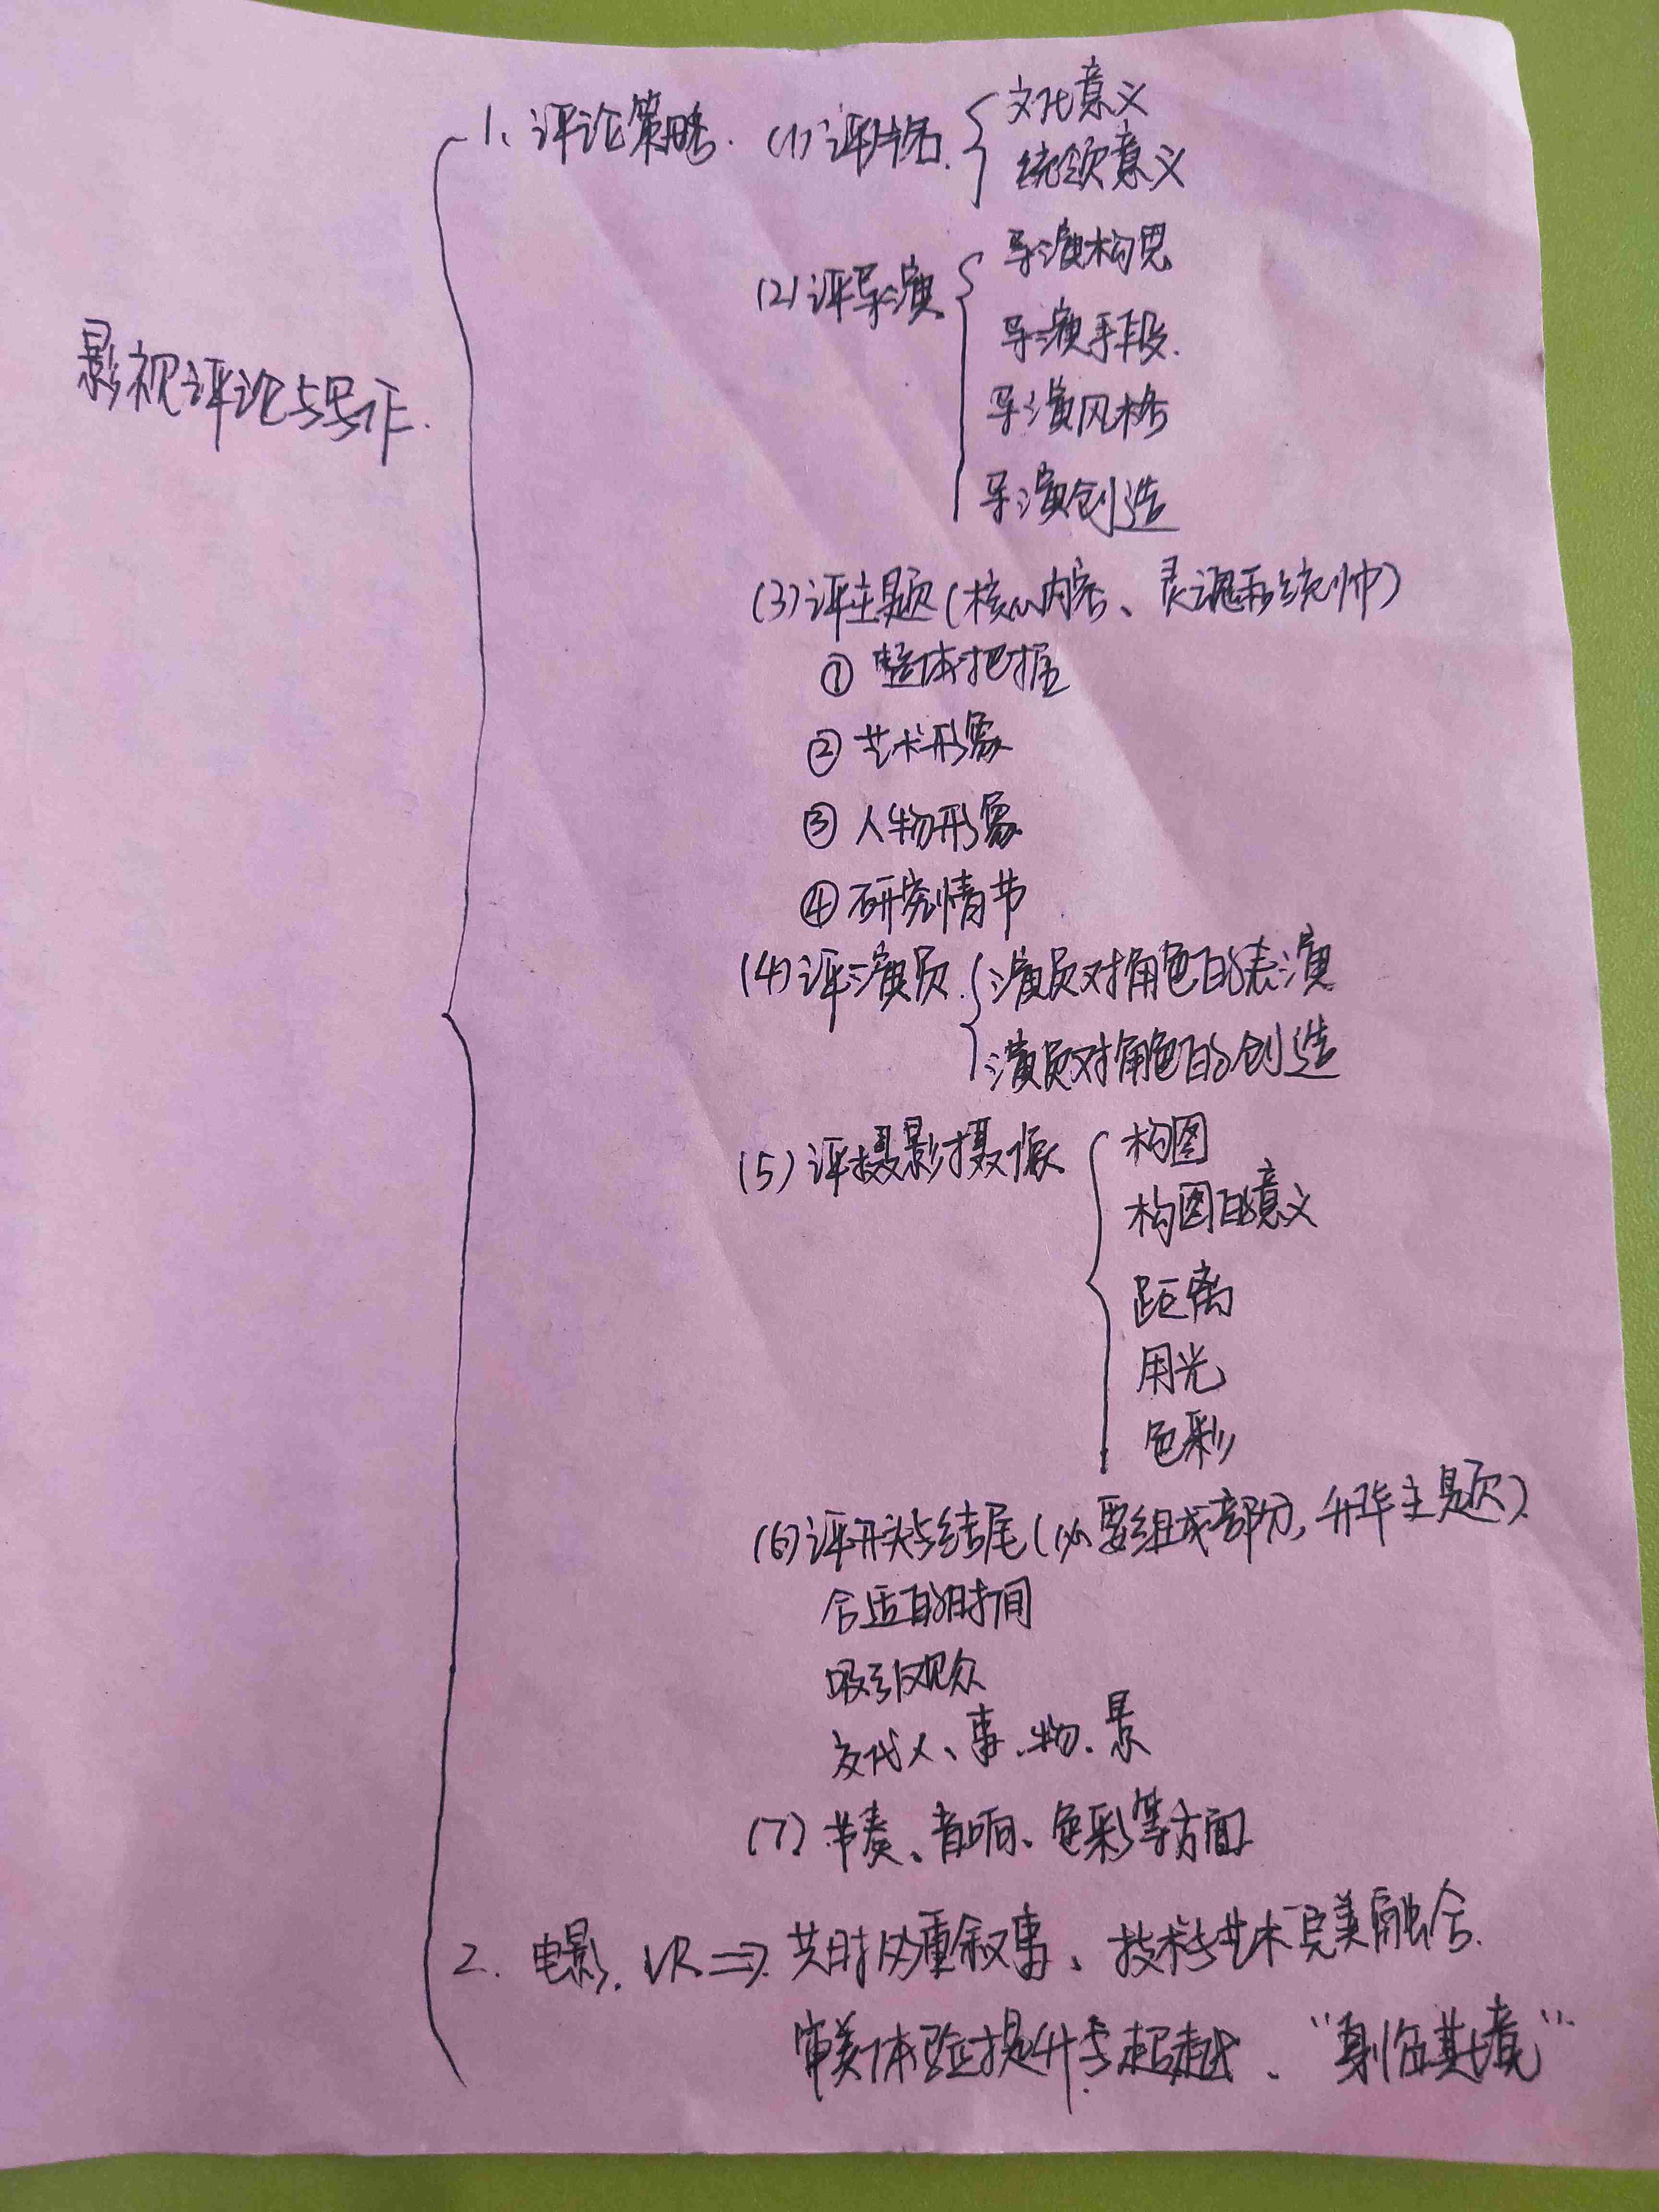 影视评论与写作.
1、评论策略. (1)评片名. 文化意义
统领意义
(2)评导演 导演构思
导演手段.
导演风格
导演创造
(3)评主题(核心内容、灵魂和统帅)
① 整体把握
② 艺术形象
③ 人物形象
④ 研究情节
(4)评演员. 演员对角色的表演
演员对角色的创造
(5)评摄影摄像 构图
构图的意义
距离
用光
色彩
(6)评开头与结尾(必要组成部分,升华主题)
合适的时间
吸引观众
交代人、事、物、景
(7)节奏、音响、色彩等方面
2. 电影. VR⇒ 共时 重叙事、技术与艺术完美融合.
审美体验提升与超越、“身临其境”